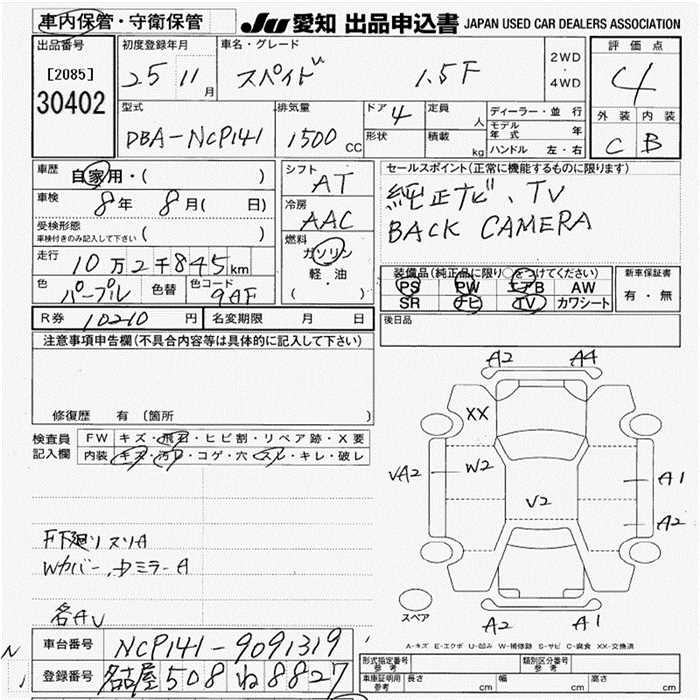 車内保管・守衛保管
JU 愛知 出品申込書 JAPAN USED CAR DEALERS ASSOCIATION
出品番号
[2085]
30402
初度登録年月
25 11月
車名・グレード
スペイド 1.5F
2WD
・
4WD
評価点
4
外装 内装
C B
型式
DBA-NCP141
排気量
1500 CC
ドア 4
形状
定員 人
積載 kg
ディーラー・並行
モデル年式 年
ハンドル 左・右
車歴
自家用・( )
車検
8年 8月( 日)
受検形態
車検付きのみ記入して下さい ( )
走行
10万2千845km
色 パープル 色替 色コード 9AF
R券 10210 円 名変期限 月 日
シフト
AT
冷房
AAC
燃料
ガソリン
軽・油
( )
セールスポイント(正常に機能するものに限ります)
純正ナビ、TV
BACK CAMERA
装備品(純正品に限り○をつけてください)
PS PW エアB AW
SR ナビ TV カワシート
新車保証書
有・無
後日品
注意事項申告欄(不具合内容等は具体的に記入して下さい)
修復歴 有 (箇所 )
検査員記入欄
FW キズ・飛石・ヒビ割・リペア跡・X要
内装 キズ・汚レ・コゲ・穴・スレ・キレ・破レ
F下廻リスリA
Wカバー、ドミラーA
名AV
A2 A4
XX
VA2 W2 V2 A1
A2
スペア
A2 A1
A-キズ E-エクボ U-凹み W-補修跡 S-サビ C-腐食 XX-交換済
車台番号 NCP141-9091319
登録番号 名古屋 508 ね 8827
型式指定番号 参考 類別区分番号 参考
車庫証明用 参考 長さ cm 幅 cm 高さ cm